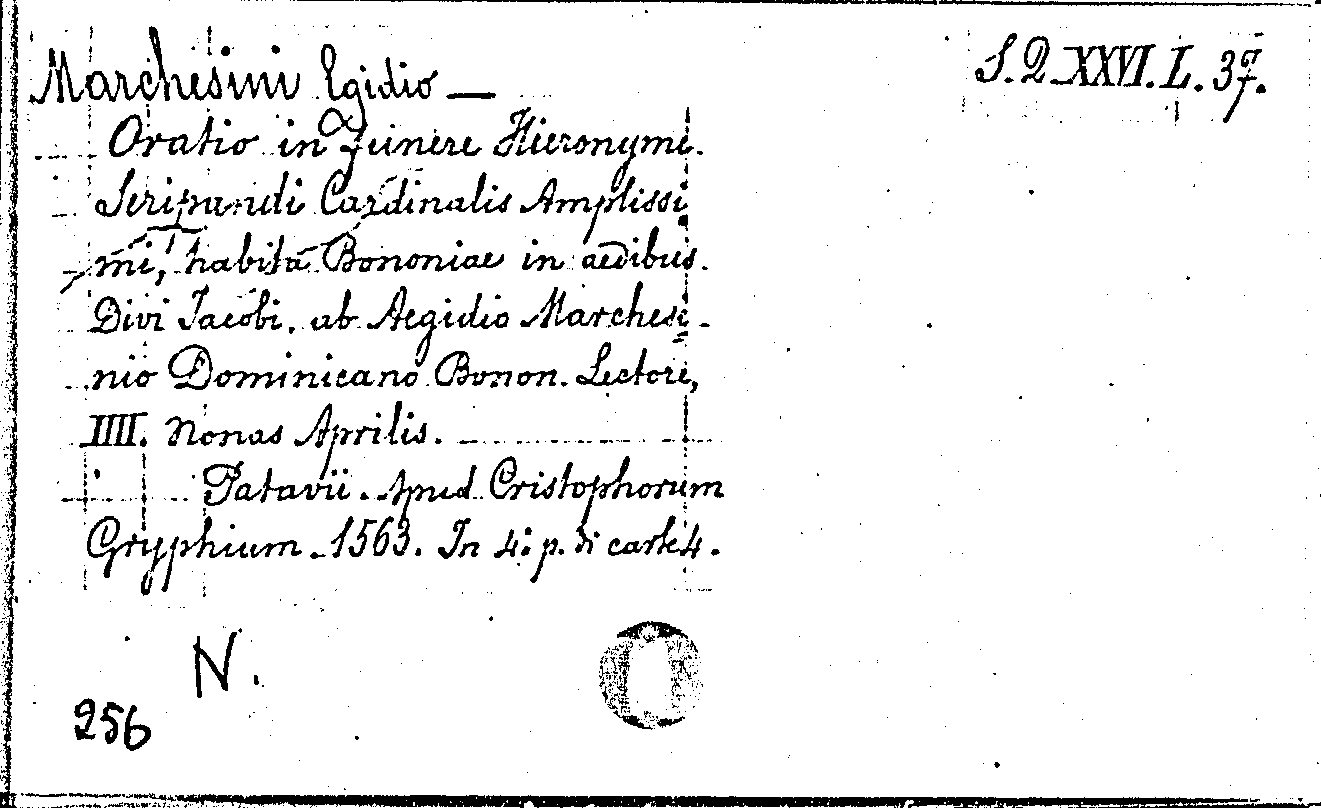 S. Q. XXVI. L. 37.
Marchesini Egidio —
Oratio in Funere Hieronymi
Seripandi Cardinalis Amplissi
mi, habita Bononiae in aedibus
Divi Jacobi. ab Aegidio Marchesi-
nio Dominicano Bonon. Lectore,
IIII. Nonas Aprilis.
Patavii. Apud Cristophorum
Gryphium - 1563. In 4.° p. di carte 4.
N.
256